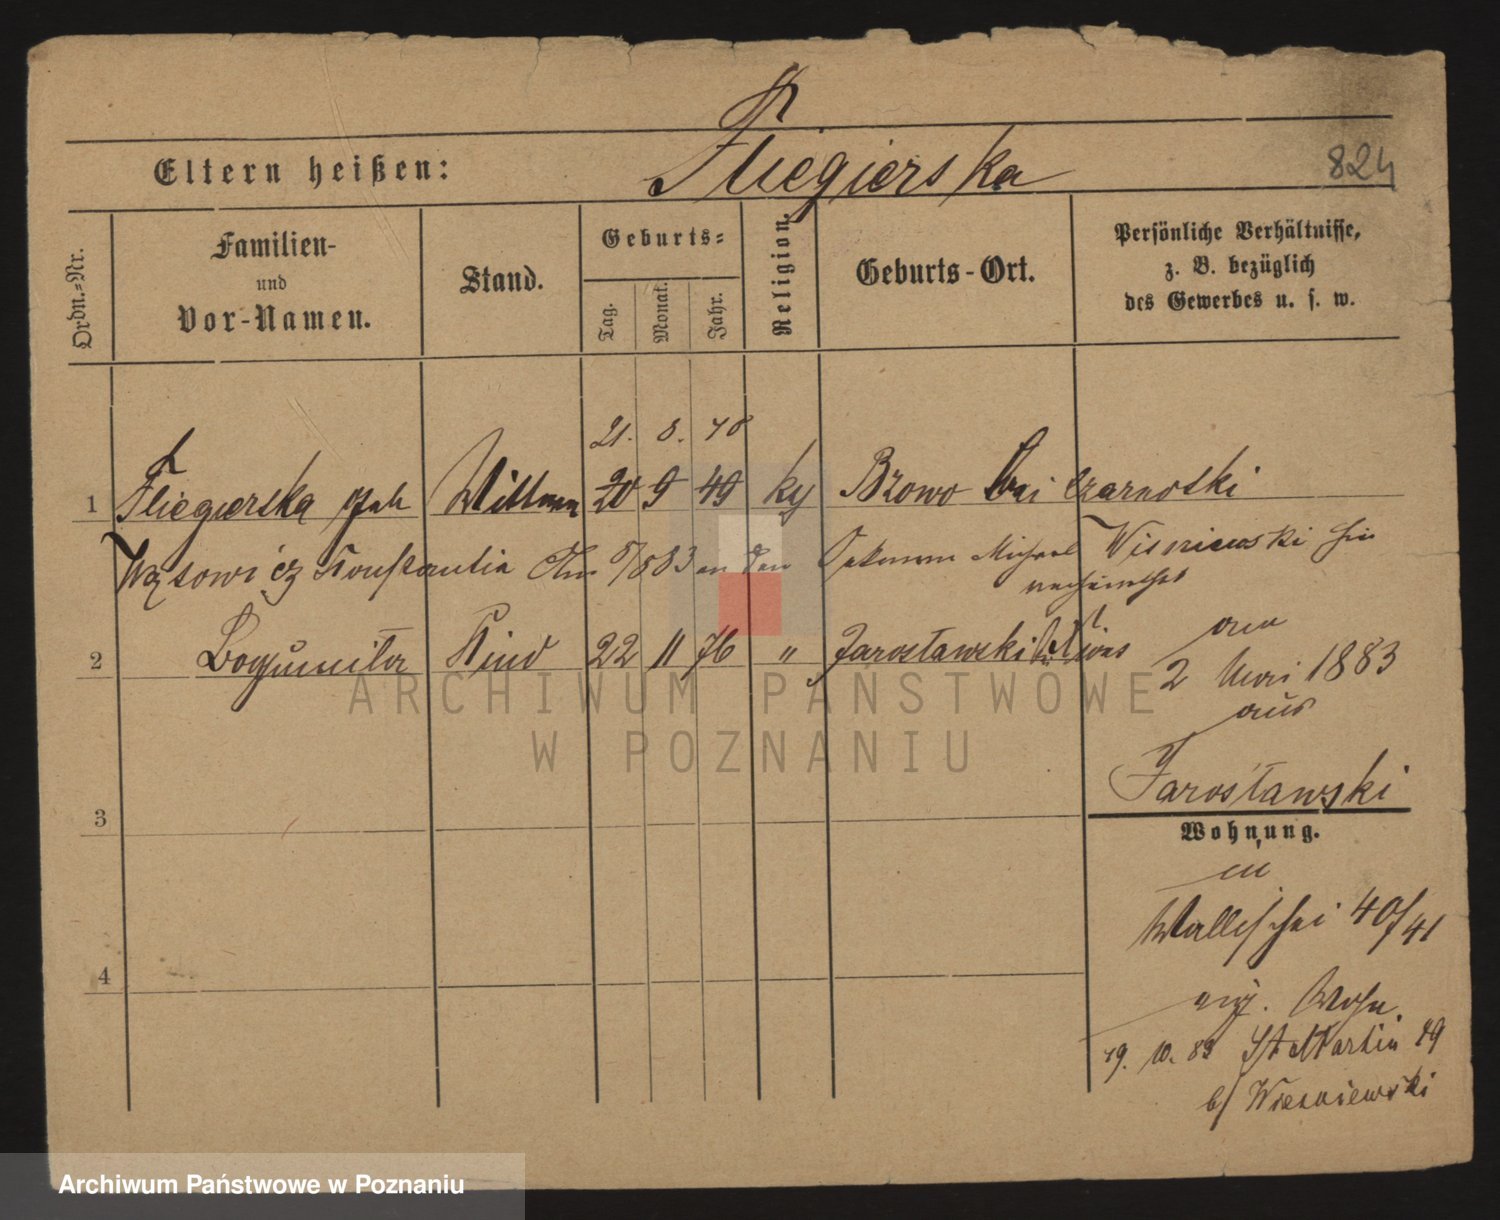 Eltern heißen:
Fliegierska
824
Ordn.-Nr.
Familien-
und
Vor-Namen.
Stand.
Geburts-
Tag.
Monat.
Jahr.
Religion.
Geburts-Ort.
Persönliche Verhältnisse,
z. B. bezüglich
des Gewerbes u. s. w.
21. 8. 48
1 Fliegierska geb Wittwe 20 9 49 kg Brzowo bei Czarnoski
Wąsowicz Konstantia Am 5/883 an den Michael Wisniewski hier
verheirathet
2 Bogumila Kind 22 11 76 " Jaroslawski
am
2 Mai 1883
aus
Jaroslawski
3
Wohnung.
in
Wallischei 40/41
4
Wohn.
19. 10. 83 St Martin 49
b/ Wisniewski
ARCHIWUM PAŃSTWOWE
W POZNANIU
Archiwum Państwowe w Poznaniu